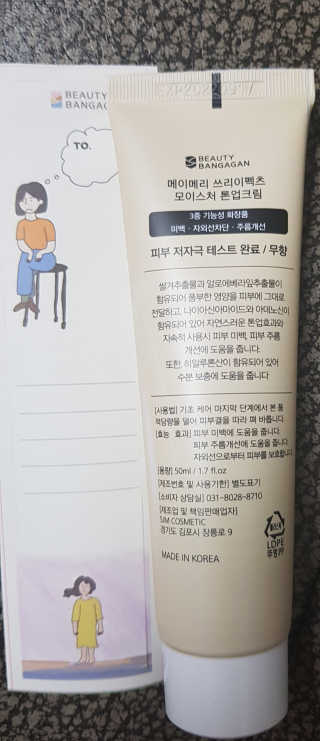 BEAUTY
BANGAGAN
TO.
BEAUTY
BANGAGAN
메이메리 쓰리이펙츠
모이스처 톤업크림
3중 기능성 화장품
미백 · 자외선차단 · 주름개선
피부 저자극 테스트 완료 / 무향
쌀겨추출물과 알로에베라잎추출물이
함유되어 풍부한 영양을 피부에 그대로
전달하고, 나이아신아마이드와 아데노신이
함유되어 있어 자연스러운 톤업효과와
지속적 사용시 피부 미백, 피부 주름
개선에 도움을 줍니다.
또한, 히알루론산이 함유되어 있어
수분 보충에 도움을 줍니다
[사용법] 기초 케어 마지막 단계에서 본 품
적당량을 덜어 피부결을 따라 펴 바릅니다.
[효능 · 효과] 피부 미백에 도움을 줍니다.
피부 주름개선에 도움을 줍니다.
자외선으로부터 피부를 보호합니다.
[용량] 50ml / 1.7 fl.oz
[제조번호 및 사용기한] 별도표기
[소비자 상담실] 031-8028-8710
[제조업 및 책임판매업자]
SJM COSMETIC
경기도 김포시 장릉로 9
MADE IN KOREA
LDPE
뚜껑:PP